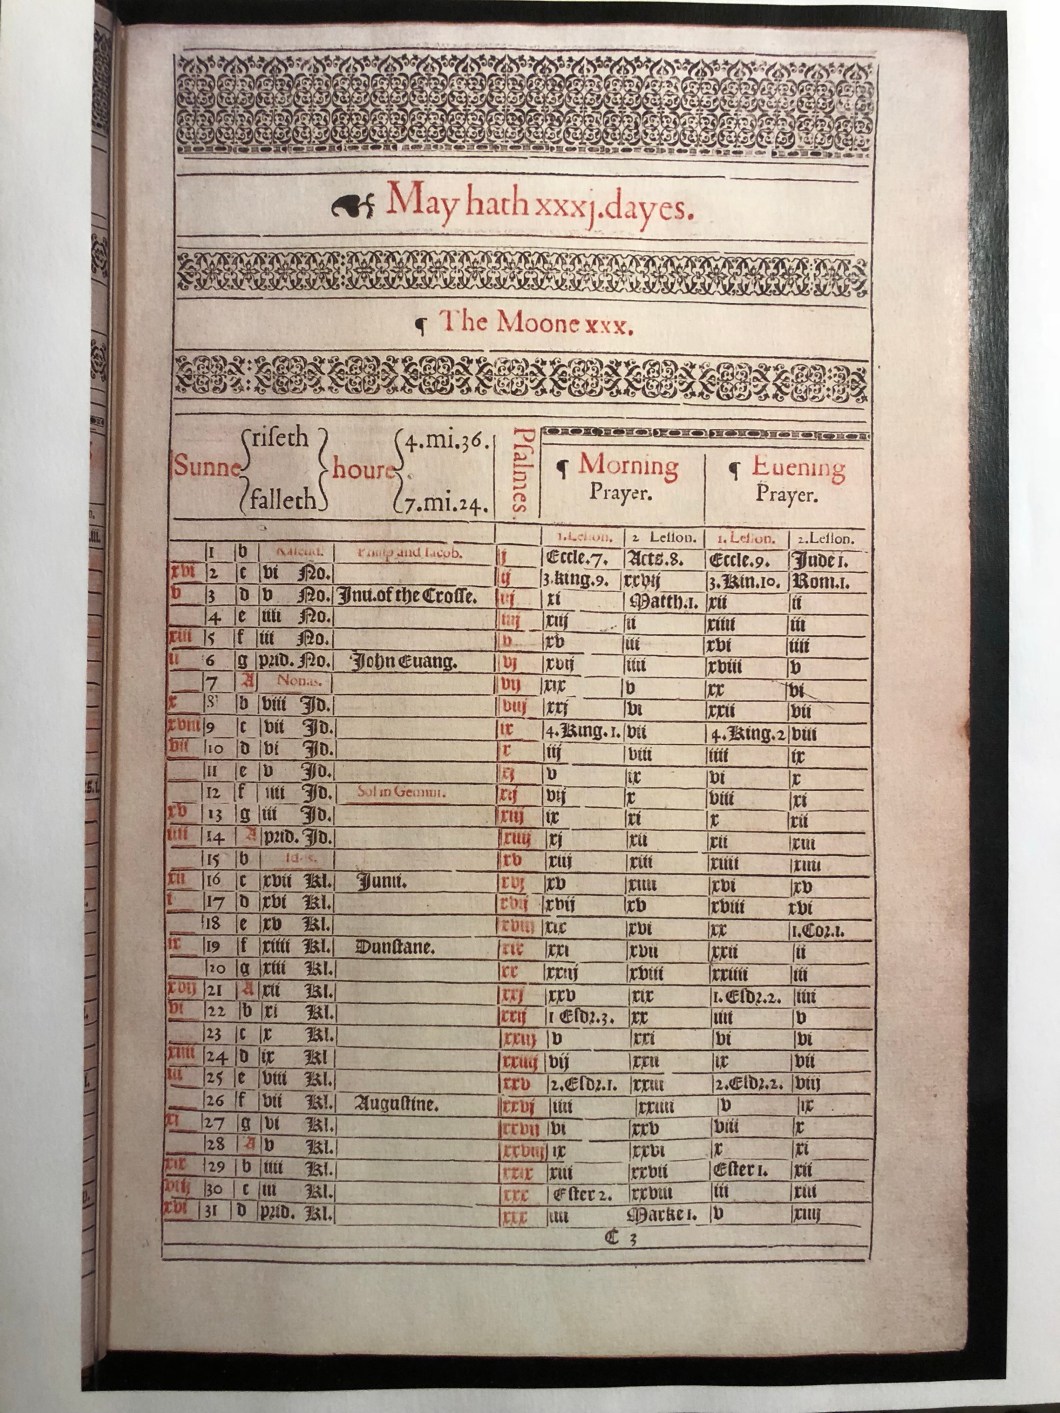 May hath xxxj.dayes.
¶ The Moone xxx.
Sunne riseth falleth houre 4.mi.36. 7.mi.24. Psalmes. ¶ Morning Prayer. ¶ Euening Prayer.
1.Lesson. 2 Lesson. 1.Lesson. 2.Lesson.
1 b Kalend. Philip and Iacob. j Eccle.7. Acts.8. Eccle.9. Jude 1.
xvi 2 c vi No. ij 3.king.9. xxvij 3.Kin.10. Rom.1.
v 3 d v No. Inu.of the Crosse. iij xi Matth.1. xii ii
4 e iiii No. iiij xiij ii xiiii iii
xiii 5 f iii No. v xv iii xvi iiii
ii 6 g prid. No. John Euang. vj xvij iiii xviii v
7 A Nonas. vij xix v xx vi
x 8 b viii Jd. viij xxj vi xxii vii
xviii 9 c vii Jd. ix 4.King.1. vii 4.King.2 viii
vii 10 d vi Jd. x iij viii iiii ix
11 e v Jd. xj v ix vi x
12 f iiii Jd. Sol in Gemini. xij vij x viii xi
xv 13 g iii Jd. xiij ix xi x xii
iiii 14 A prid. Jd. xiiij xj xii xii xiii
15 b Idus. xv xiij xiii xiiii xiiii
xii 16 c xvii Kl. Junii. xvj xv xiiii xvi xv
i 17 d xvi Kl. xvij xvij xv xviii xvi
18 e xv Kl. xviij xix xvi xx 1.Cor.1.
ix 19 f xiiii Kl. Dunstane. xix xxi xvii xxii ii
20 g xiii Kl. xx xxiij xviii xxiiii iii
xvij 21 A xii Kl. xxj xxv xix 1.Esdr.2. iiii
vi 22 b xi Kl. xxij 1 Esdr.3. xx iiii v
23 c x Kl. xxiij v xxi vi vi
xiiii 24 d ix Kl xxiiij vij xxii ix vii
iii 25 e viii Kl. xxv 2.Esdr.1. xxiii 2.Esdr.2. viij
26 f vii Kl. Augustine. xxvj iiii xxiiii v ix
xi 27 g vi Kl. xxvij vi xxv viii x
28 A v Kl. xxviij ix xxvi x xi
xix 29 b iiii Kl. xxix xiii xxvii Ester 1. xii
viij 30 c iii Kl. xxx Ester 2. xxviii iii xiii
xvi 31 d prid. Kl. xxx iiii Marke 1. v xiiij
C 3